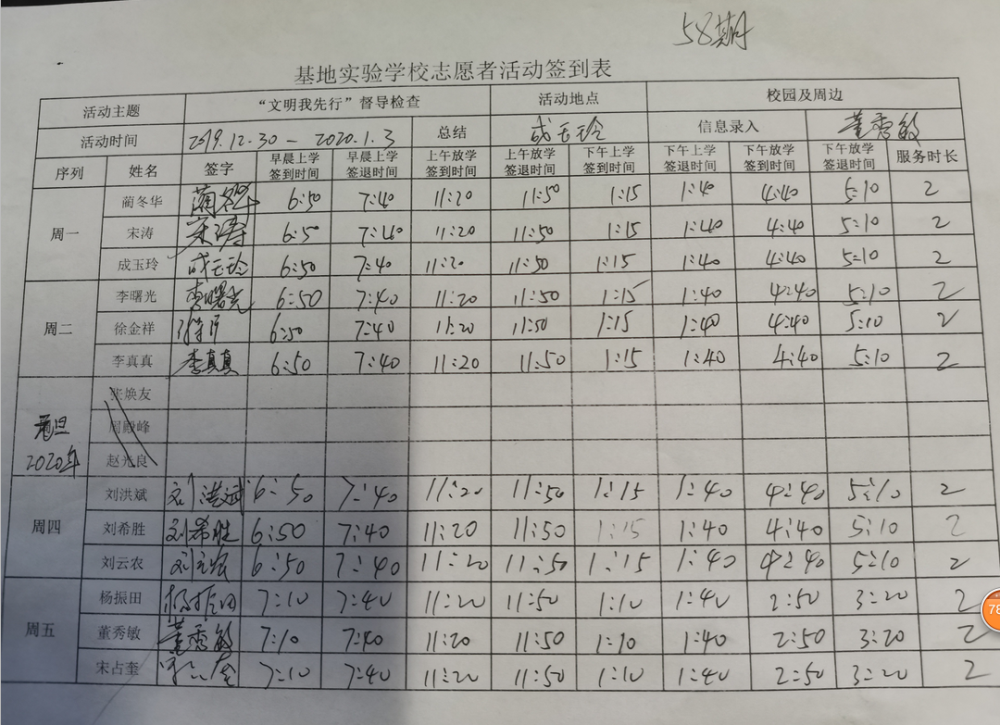 58期
基地实验学校志愿者活动签到表
活动主题 “文明我先行”督导检查 活动地点 校园及周边
活动时间 2019.12.30－2020.1.3 总结 成玉玲 信息录入 董秀敏
序列 姓名 签字 早晨上学签到时间 早晨上学签退时间 上午放学签到时间 上午放学签退时间 下午上学签到时间 下午上学签退时间 下午放学签到时间 下午放学签退时间 服务时长
周一 蔺冬华 蔺冬华 6:50 7:40 11:20 11:50 1:15 1:40 4:40 5:10 2
宋涛 宋涛 6:50 7:40 11:20 11:50 1:15 1:40 4:40 5:10 2
成玉玲 成玉玲 6:50 7:40 11:20 11:50 1:15 1:40 4:40 5:10 2
周二 李曙光 李曙光 6:50 7:40 11:20 11:50 1:15 1:40 4:40 5:10 2
徐金祥 6:50 7:40 11:20 11:50 1:15 1:40 4:40 5:10 2
李真真 李真真 6:50 7:40 11:20 11:50 1:15 1:40 4:40 5:10 2
元旦 2020年 张焕友
峰
赵光良
周四 刘洪斌 刘洪斌 6:50 7:40 11:20 11:50 1:15 1:40 4:40 5:10 2
刘希胜 刘希胜 6:50 7:40 11:20 11:50 1:15 1:40 4:40 5:10 2
刘云农 刘云农 6:50 7:40 11:20 11:50 1:15 1:40 4:40 5:10 2
周五 杨振田 杨振田 7:10 7:40 11:20 11:50 1:10 1:40 2:50 3:20 2
董秀敏 董秀敏 7:10 7:40 11:20 11:50 1:10 1:40 2:50 3:20 2
宋占奎 7:10 7:40 11:20 11:50 1:10 1:40 2:50 3:20 2
78